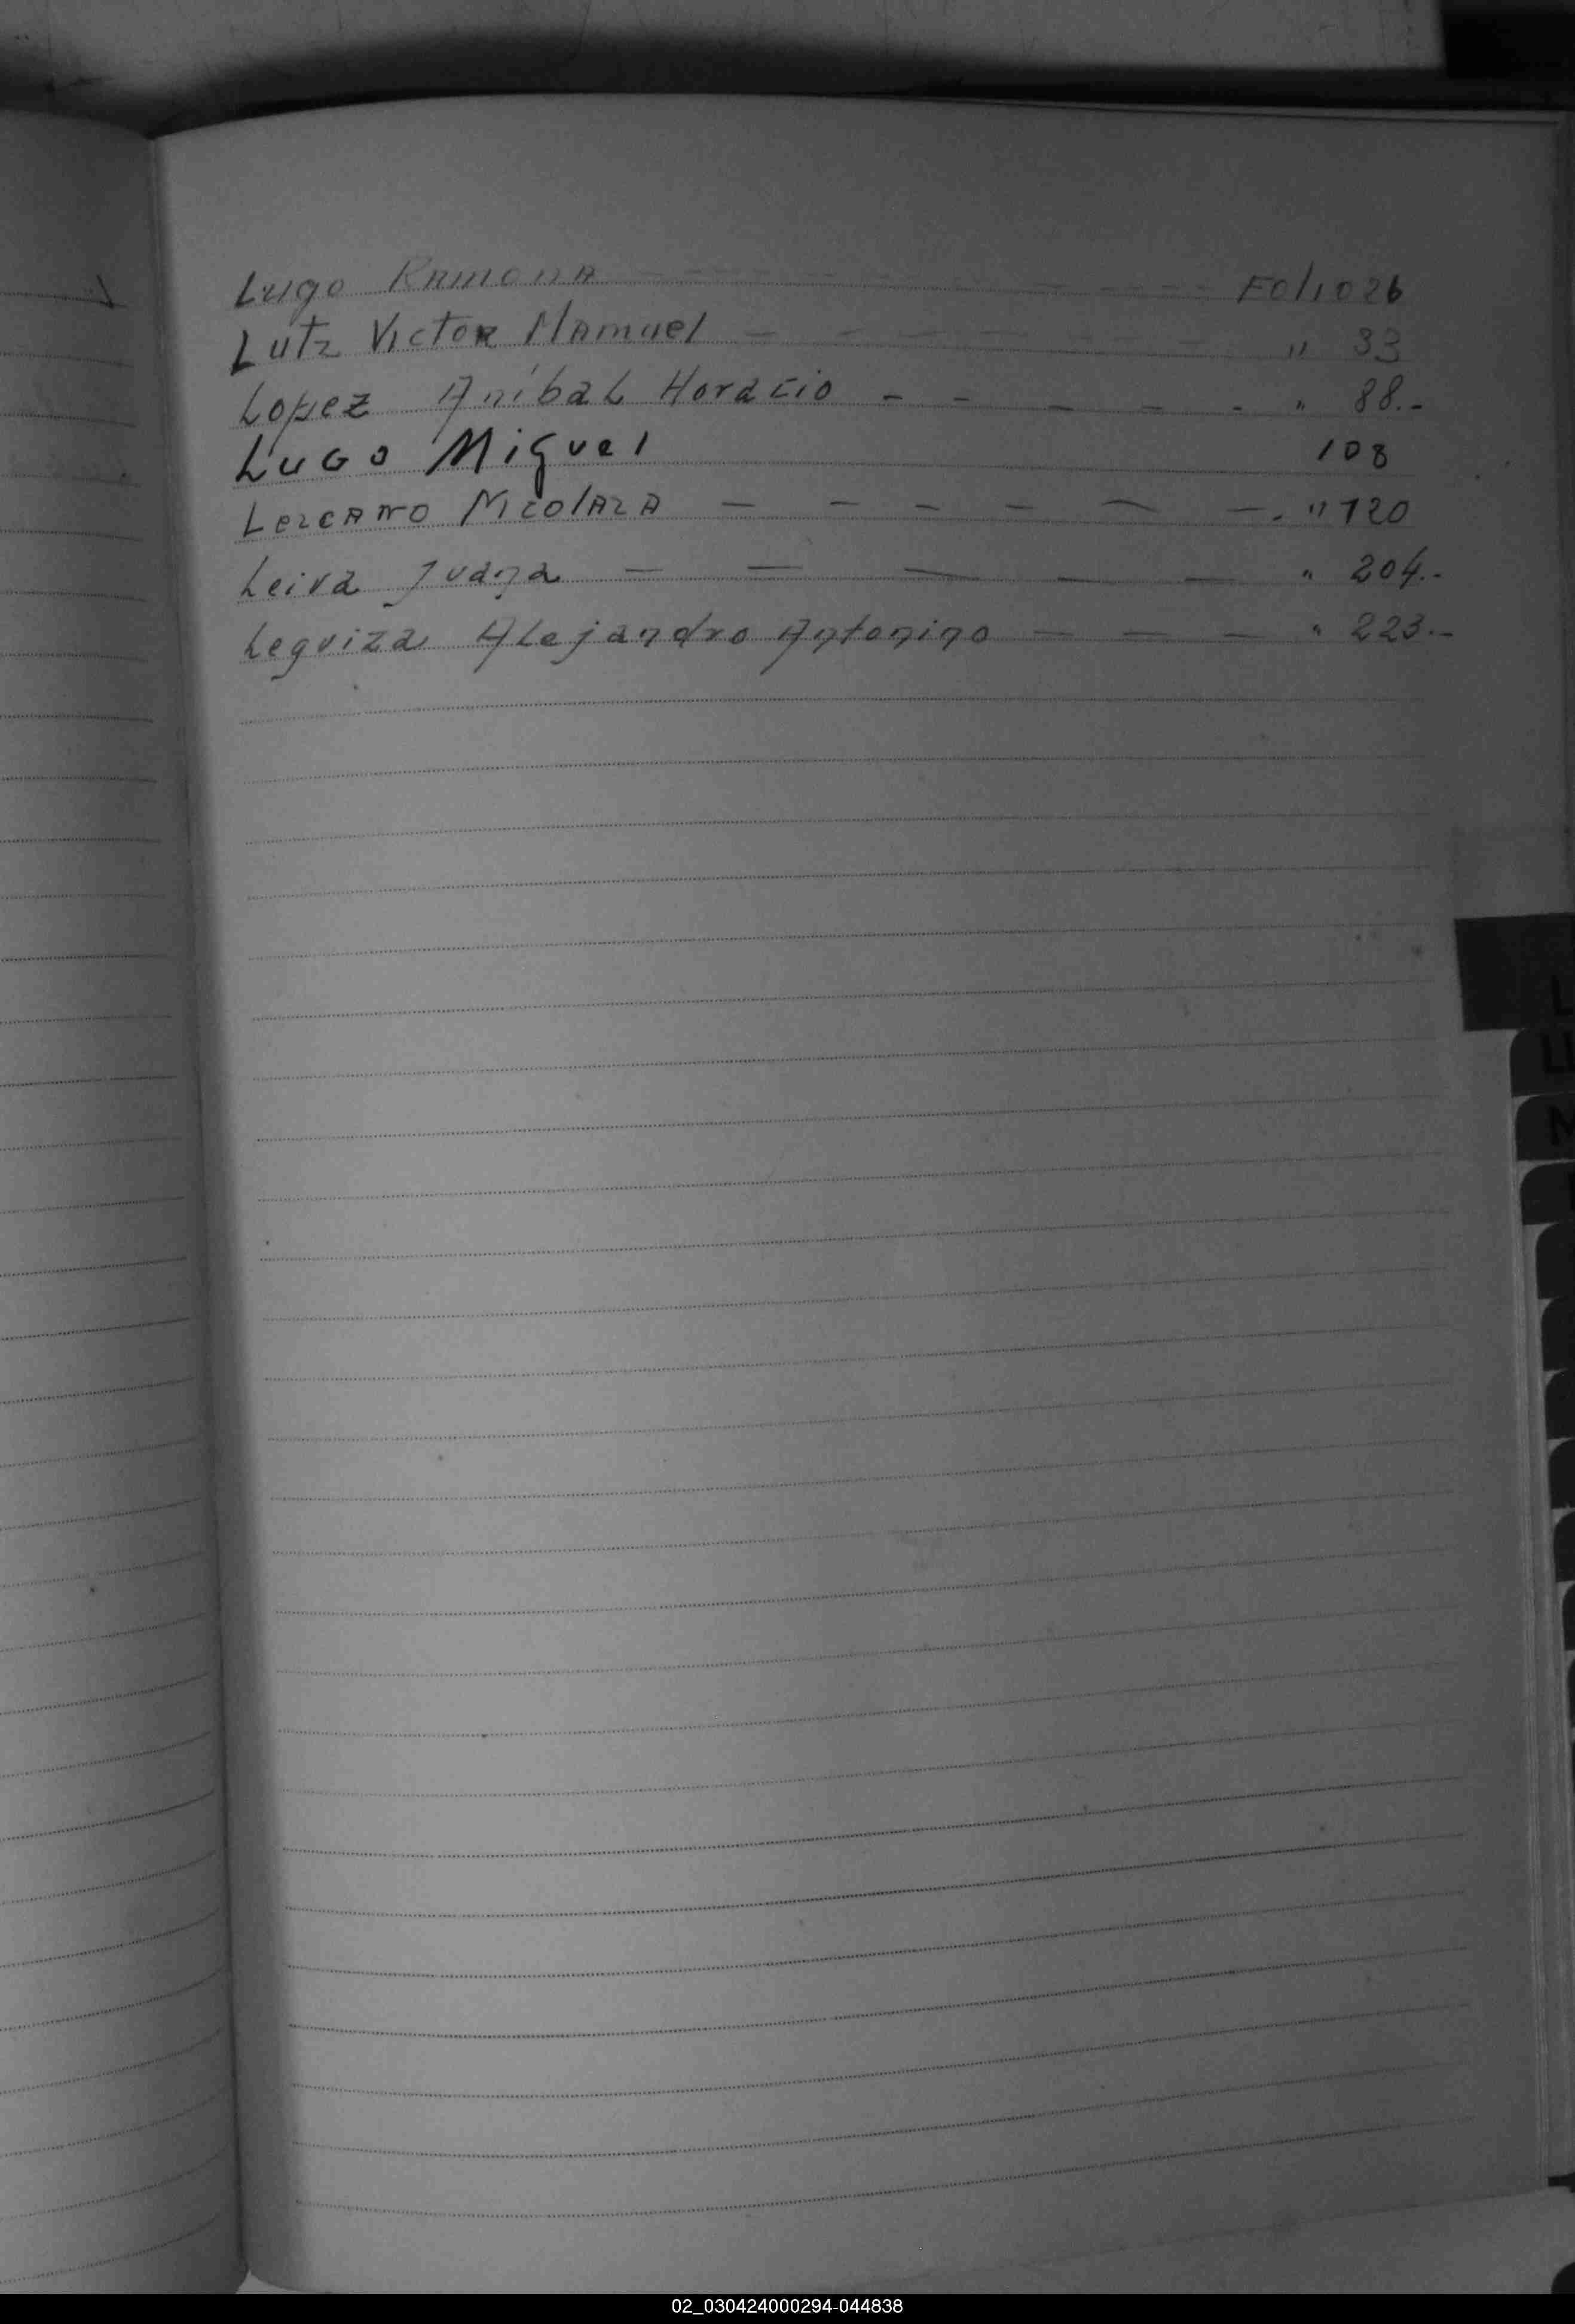 Lugo Ramona - - - - - - - - Folio 26
Lutz Victor Manuel - - - - - - " 33
Lopez Anibal Horacio - - - - - " 88.-
Lugo Miguel 108
Lezcano Nicolaza - - - - - -. " 120
Leiva Juana - - - - - " 204.-
Leguiza Alejandro Antonino - - - " 223.-
L
LL
M
02_030424000294-044838